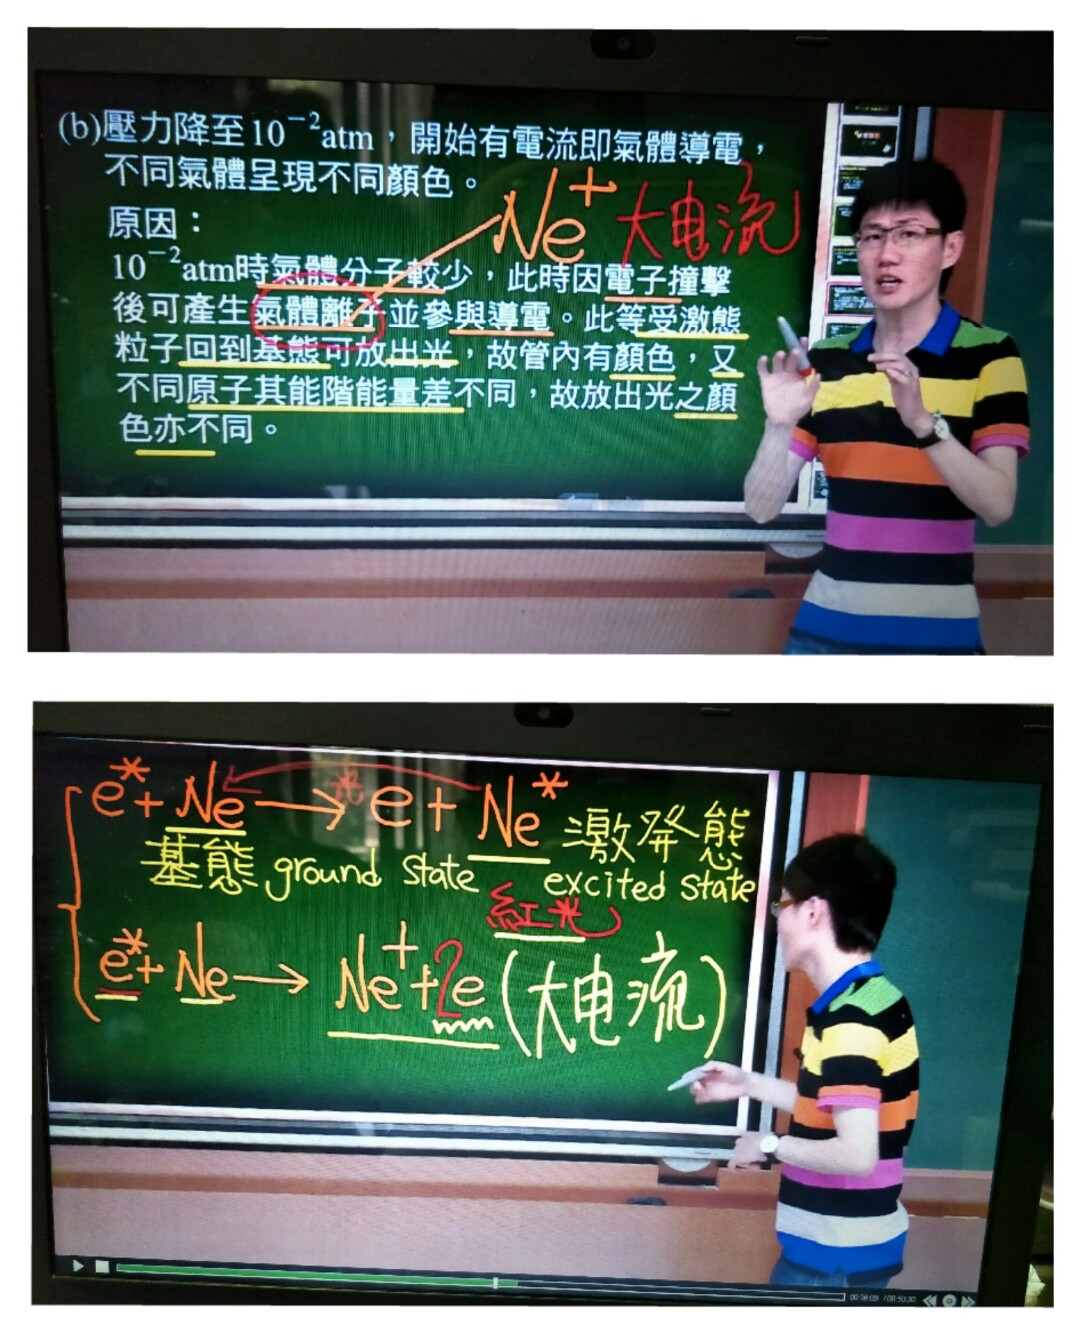 (b)壓力降至10⁻²atm，開始有電流即氣體導電，
不同氣體呈現不同顏色。
Ne⁺ 大电流
原因：
10⁻²atm時氣體分子較少，此時因電子撞擊
後可產生氣體離子並參與導電。此等受激態
粒子回到基態可放出光，故管內有顏色，又
不同原子其能階能量差不同，故放出光之顏
色亦不同。
e*+ Ne → e + Ne* 激発態
光
基態 ground state excited state
紅光
e*+ Ne → Ne⁺+2e (大电流)